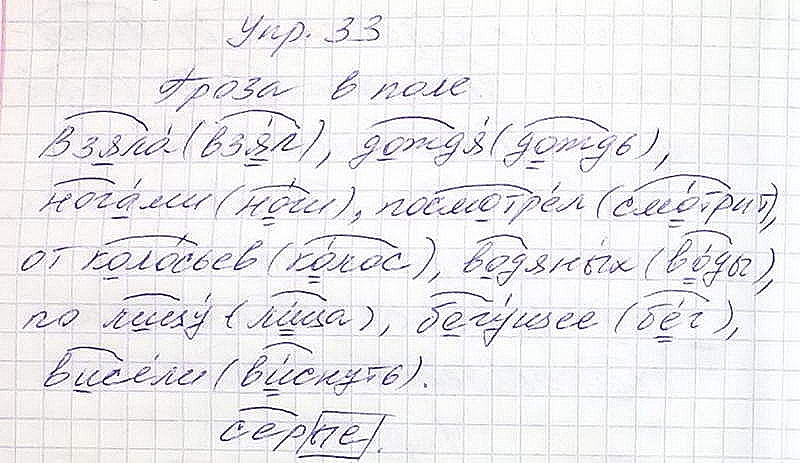 Упр. 33
Гроза в поле.
Взяла́ (взя́л), дождя́ (дождь),
нога́ми (но́ги), посмотре́л (смо́трит),
от коло́сьев (ко́лос), водяны́х (во́ды),
по лицу́ (ли́ца), бегу́щее (бе́г),
висе́ли (ви́снуть).